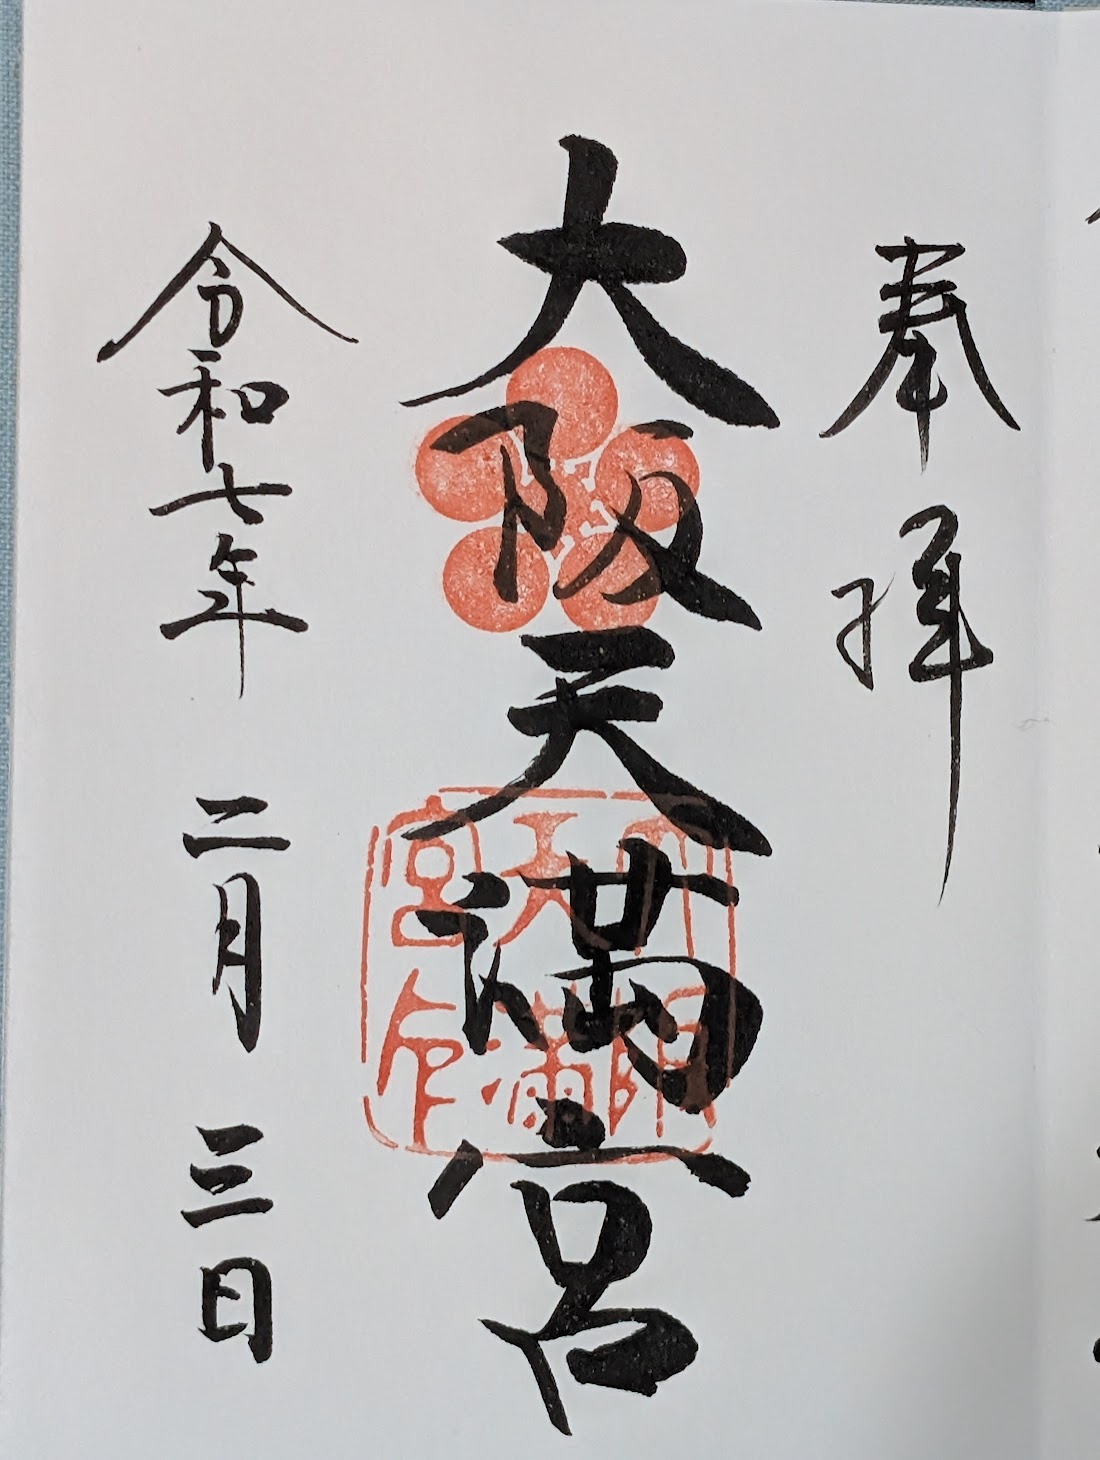 奉拝
大阪天満宮
大阪
天満
宮印
令和七年 二月 三日